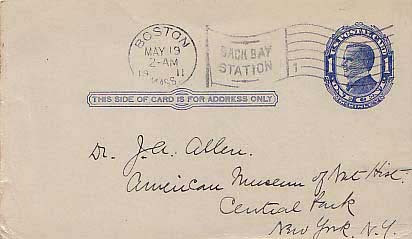 BOSTON
MAY 19
2-AM
19 11
MASS.
BACK BAY
STATION
1
U.S. POSTAL CARD
1 1
ONE CENT
THIS SIDE OF CARD IS FOR ADDRESS ONLY
Dr. J. A. Allen.
American Museum of Nat. Hist.
Central Park
New York, N.Y.